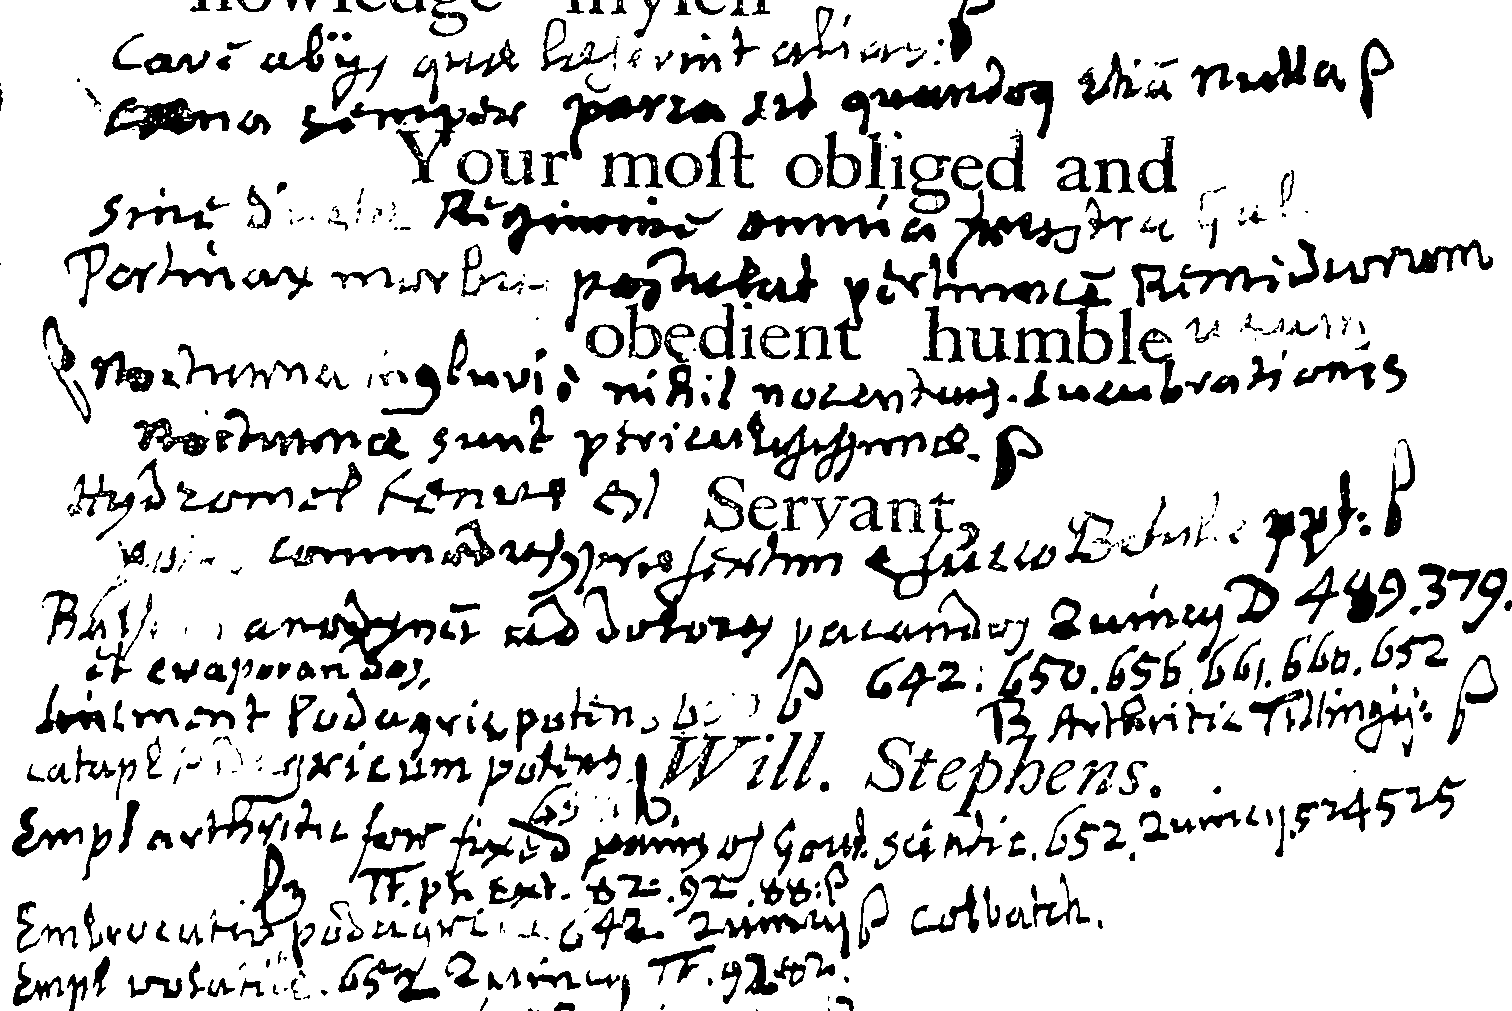 nowledge myself
Cavē ab ijs quæ læserint alias:
Cæna semper parca sit quandoq etiā nulla
Your moſt obliged and
sine Regimine omnia
Pertinax morbus postulat pertinacē Remidiorum
obedient humble usum
Nocturna ingluvie nihil nocentius. Lucubrationes
Nocturnæ sunt
Hydromel tenue est Servant,
potus commodus præsertim e succo Betulæ ppt:
Bals. anodynū ad dolores pacandos Quincy D 489.379.
et evaporandos, 642: 650.656.661.660.652
Liniment Podagric potens ℞ Arthritic Tillingij:
catapl podagricum potens Will. Stephens.
Empl arthritic for fixed pains of Gout sciatic. 652. Quincy 524 525
TF. ph. Ext. 82: 92. 88:
Embrocatio podagric 642 Quincy Colbatch.
Empl volatile. 652 Quincy TF. 92